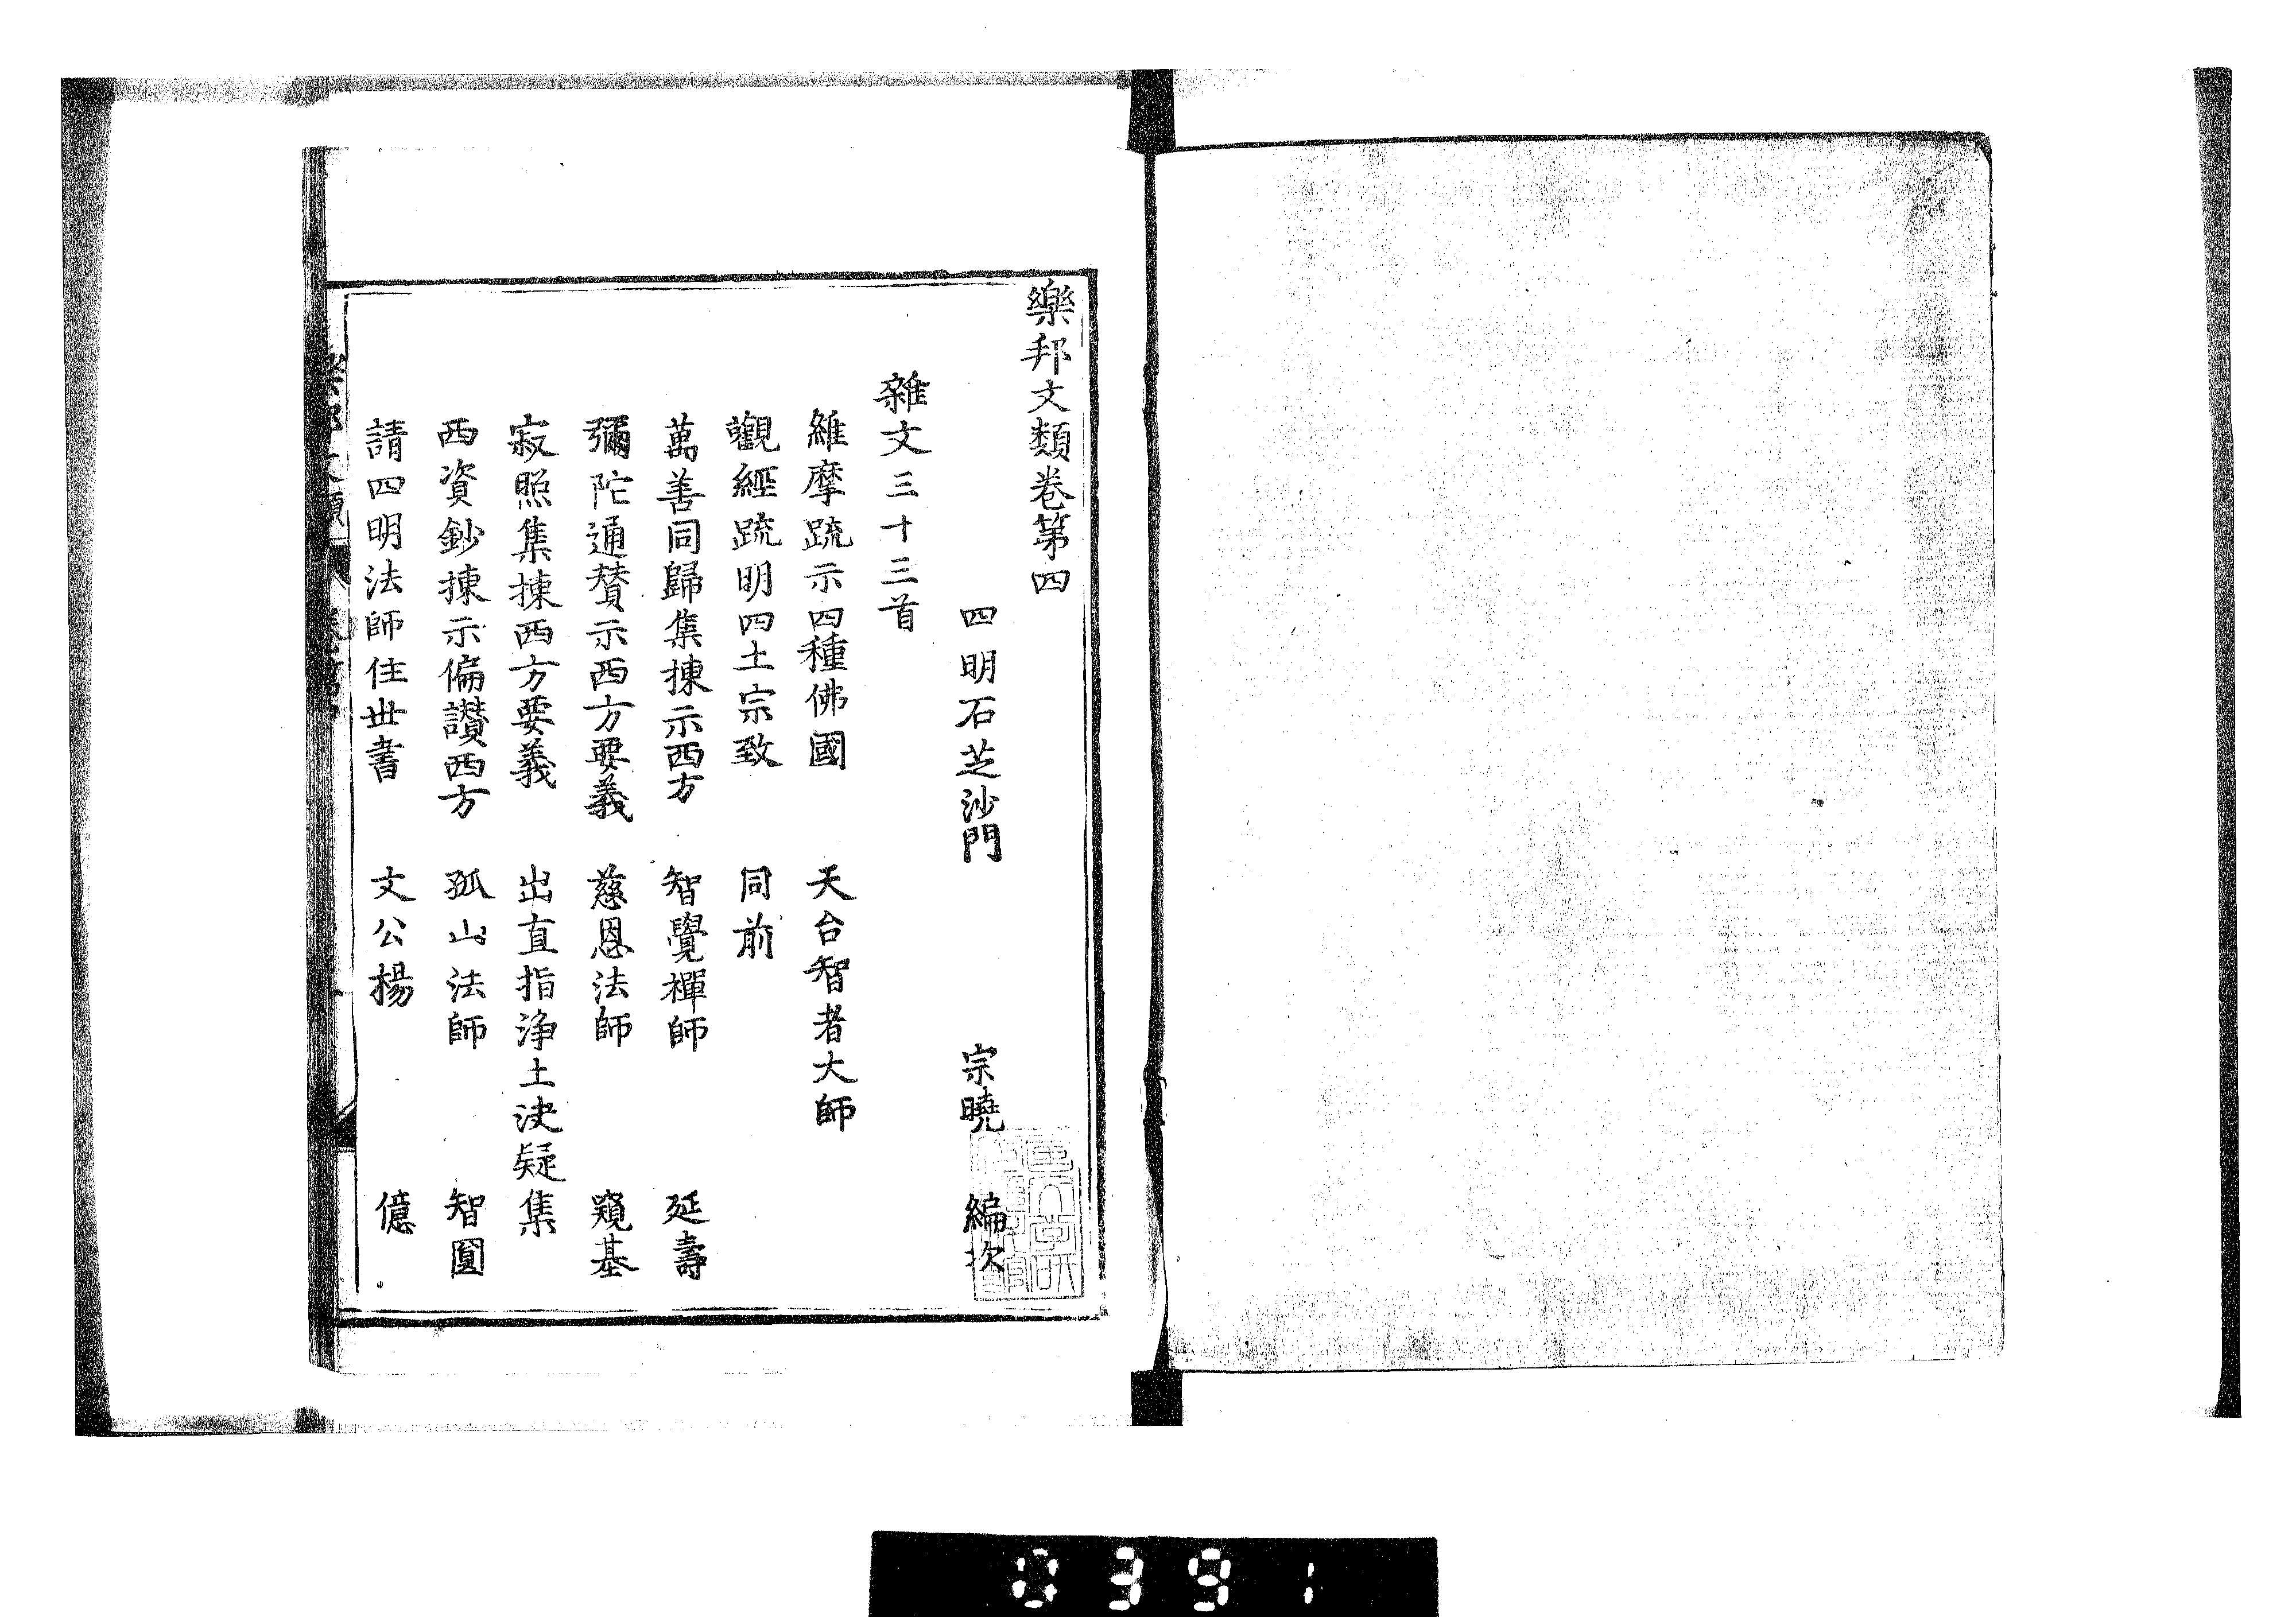 樂邦文類卷第四
四明石芝沙門 宗曉 編次
雜文三十三首
維摩疏示四種佛國 天台智者大師
觀經疏明四土宗致 同前
萬善同歸集揀示西方 智覺禪師 延壽
彌陀通賛示西方要義 慈恩法師 窺基
寂照集揀西方要義 出直指淨土決疑集
西資鈔揀示偏讃西方 孤山法師 智圓
請四明法師住世書 文公楊 億
0391